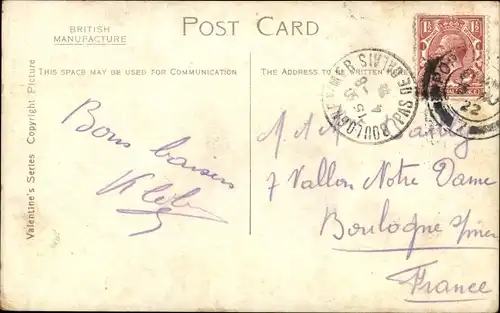 BRITISH
MANUFACTURE
POST CARD
THIS SPACE MAY BE USED FOR COMMUNICATION
THE ADDRESS TO BE WRITTEN
Valentine's Series Copyright Picture
Bons baisers
M A M
7 Vallon Notre Dame
Boulogne s/mer
France
BOULOGNE S MER
PAS DE CALAIS
22